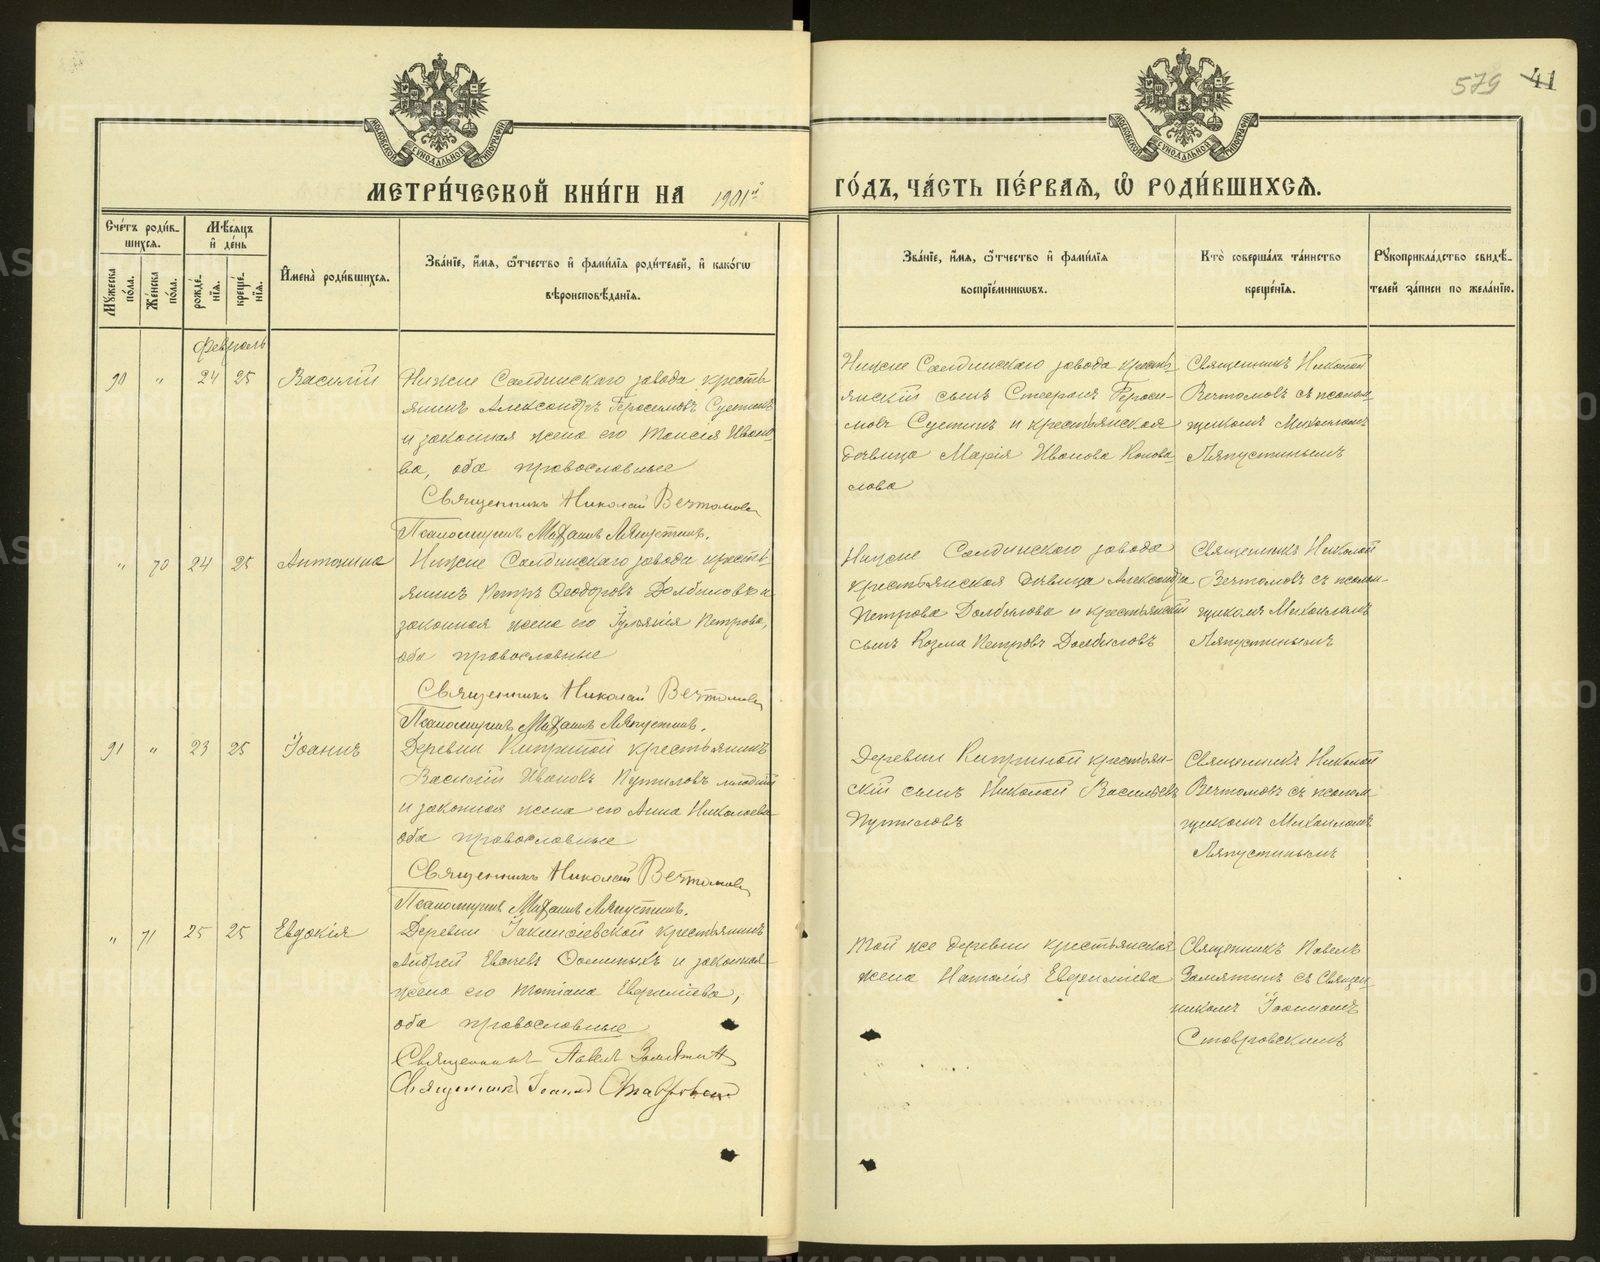 579 41
МОСКОВСКОЙ СѴНОДАЛЬНОЙ ТИПОГРАФІИ
МОСКОВСКОЙ СѴНОДАЛЬНОЙ ТИПОГРАФІИ
МЕТРИ́ЧЕСКОЙ КНИ́ГИ НА 1901й ГО́ДЪ, ЧА́СТЬ ПЕ́РВАЯ, Ѽ РОДИ́ВШИХСЯ.
Сче́тъ роди́в-
шихся.
Мѣ́сяцъ
и҆ де́нь
Мꙋ́жеска
по́ла.
Же́нска
по́ла.
рожде́-
нїѧ.
креще́-
нїѧ.
И҆мена̀ роди́вшихся.
Зва́нїе, и҆́мя, ѻ҆́тчество и҆ фами́лїя роди́телей, и҆ како́гѡ
вѣроисповѣ́данїя.
Зва́нїе, и҆́мя, ѻ҆́тчество и҆ фами́лїя
воспрїе́мникѡвъ.
Кто̀ соверша́лъ та́инство
креще́нїя.
Рꙋкоприкла́дство свидѣ́-
телей за́писи по жела́нїю.
Февраль
90 " 24 25 Василій
Нижне Салдинскаго завода кресть-
янинъ Александръ Герасимовъ Сустинъ
и законная жена его Таисія Ивано-
ва, оба православные
Священникъ Николай Вечтомовъ
Псаломщикъ Михаилъ Ляпустинъ.
Нижне Салдинскаго завода кресть-
янскій сынъ Стефанъ Гераси-
мовъ Сустинъ и крестьянская
дѣвица Марія Иванова Конова-
лова
Священникъ Николай
Вечтомовъ съ псалом-
щикомъ Михаиломъ
Ляпустинымъ
" 70 24 25 Антонина
Нижне Салдинскаго завода кресть-
янинъ Петръ Ѳеодоровъ Долбиловъ и
законная жена его Іуліанія Петрова,
оба православные
Священникъ Николай Вечтомовъ
Псаломщикъ Михаилъ Ляпустинъ.
Нижне Салдинскаго завода
крестьянская дѣвица Александра
Петрова Долбилова и крестьянскій
сынъ Козма Петровъ Долбиловъ
Священникъ Николай
Вечтомовъ съ псалом-
щикомъ Михаиломъ
Ляпустинымъ
91 " 23 25 Іоаннъ
Деревни Киприной крестьянинъ
Василій Ивановъ Путиловъ младшій
и законная жена его Анна Николаева
оба православные
Священникъ Николай Вечтомовъ
Псаломщикъ Михаилъ Ляпустинъ.
Деревни Киприной крестьян-
скій сынъ Николай Васильевъ
Путиловъ
Священникъ Николай
Вечтомовъ съ псалом-
щикомъ Михаиломъ
Ляпустинымъ
" 71 25 25 Евдокія
Деревни крестьянинъ
Андрей и законная
жена его Татіана
оба православные
Священникъ Павелъ Замятинъ
Священникъ Іоаннъ Ставровскій
Той же деревни крестьянская
жена Наталія
Священникъ Павелъ
Замятинъ съ Священ-
никомъ Іоанномъ
Ставровскимъ
METRIKI.GASO-URAL.RU